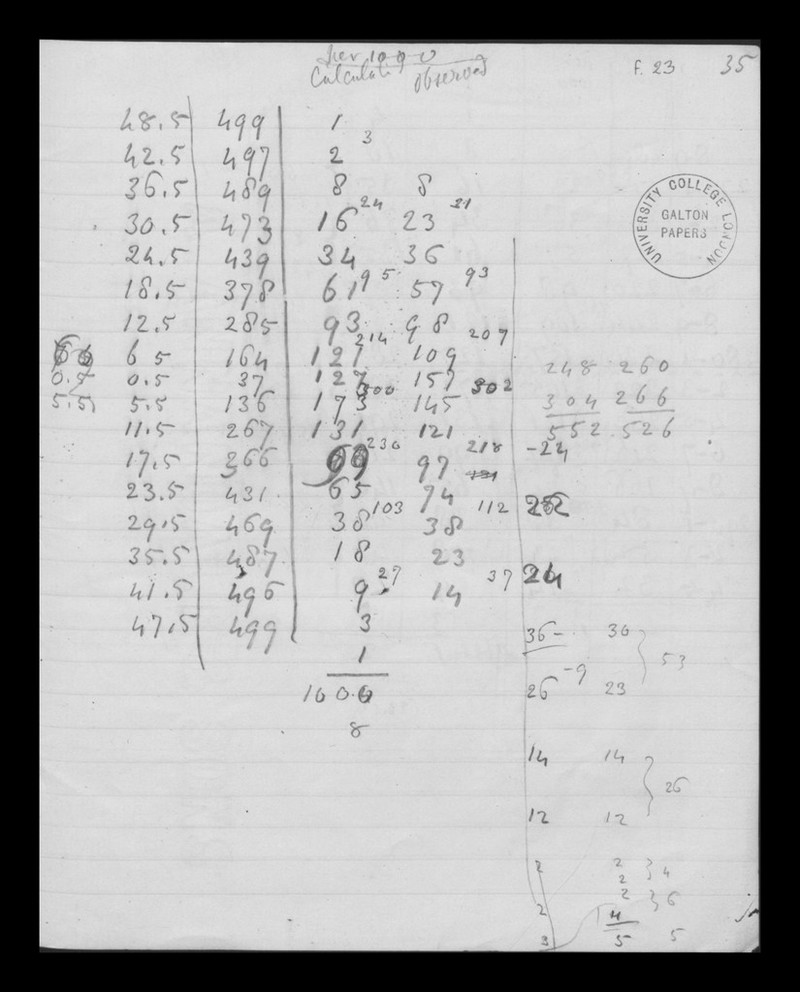 per 1000
Calculate observed
F. 23 35
UNIVERSITY COLLEGE LONDON
GALTON
PAPERS
48.5 499 1
3
42.5 497 2
36.5 489 8 8
24 31
30.5 473 16 23
24.5 439 34 36
18.5 378 61 95 57 93
12.5 285 93 98
214 207
6 5 164 121 109
0.5 0.5 37 127 157
300 302
5.5 5.5 136 173 145
11.5 267 131 121
230 218
17.5 366 99 97
23.5 431 65 74
103 112
29.5 469 38 38
35.5 487 18 23
27 37
41.5 496 9 14
47.5 499 3
1
1000
8
248 260
304 266
552 526
-24
26
24
36- 30
53
-9
26 23
14 14
26
12 12
2 2
4
2
2
6
2 4
3 5 5